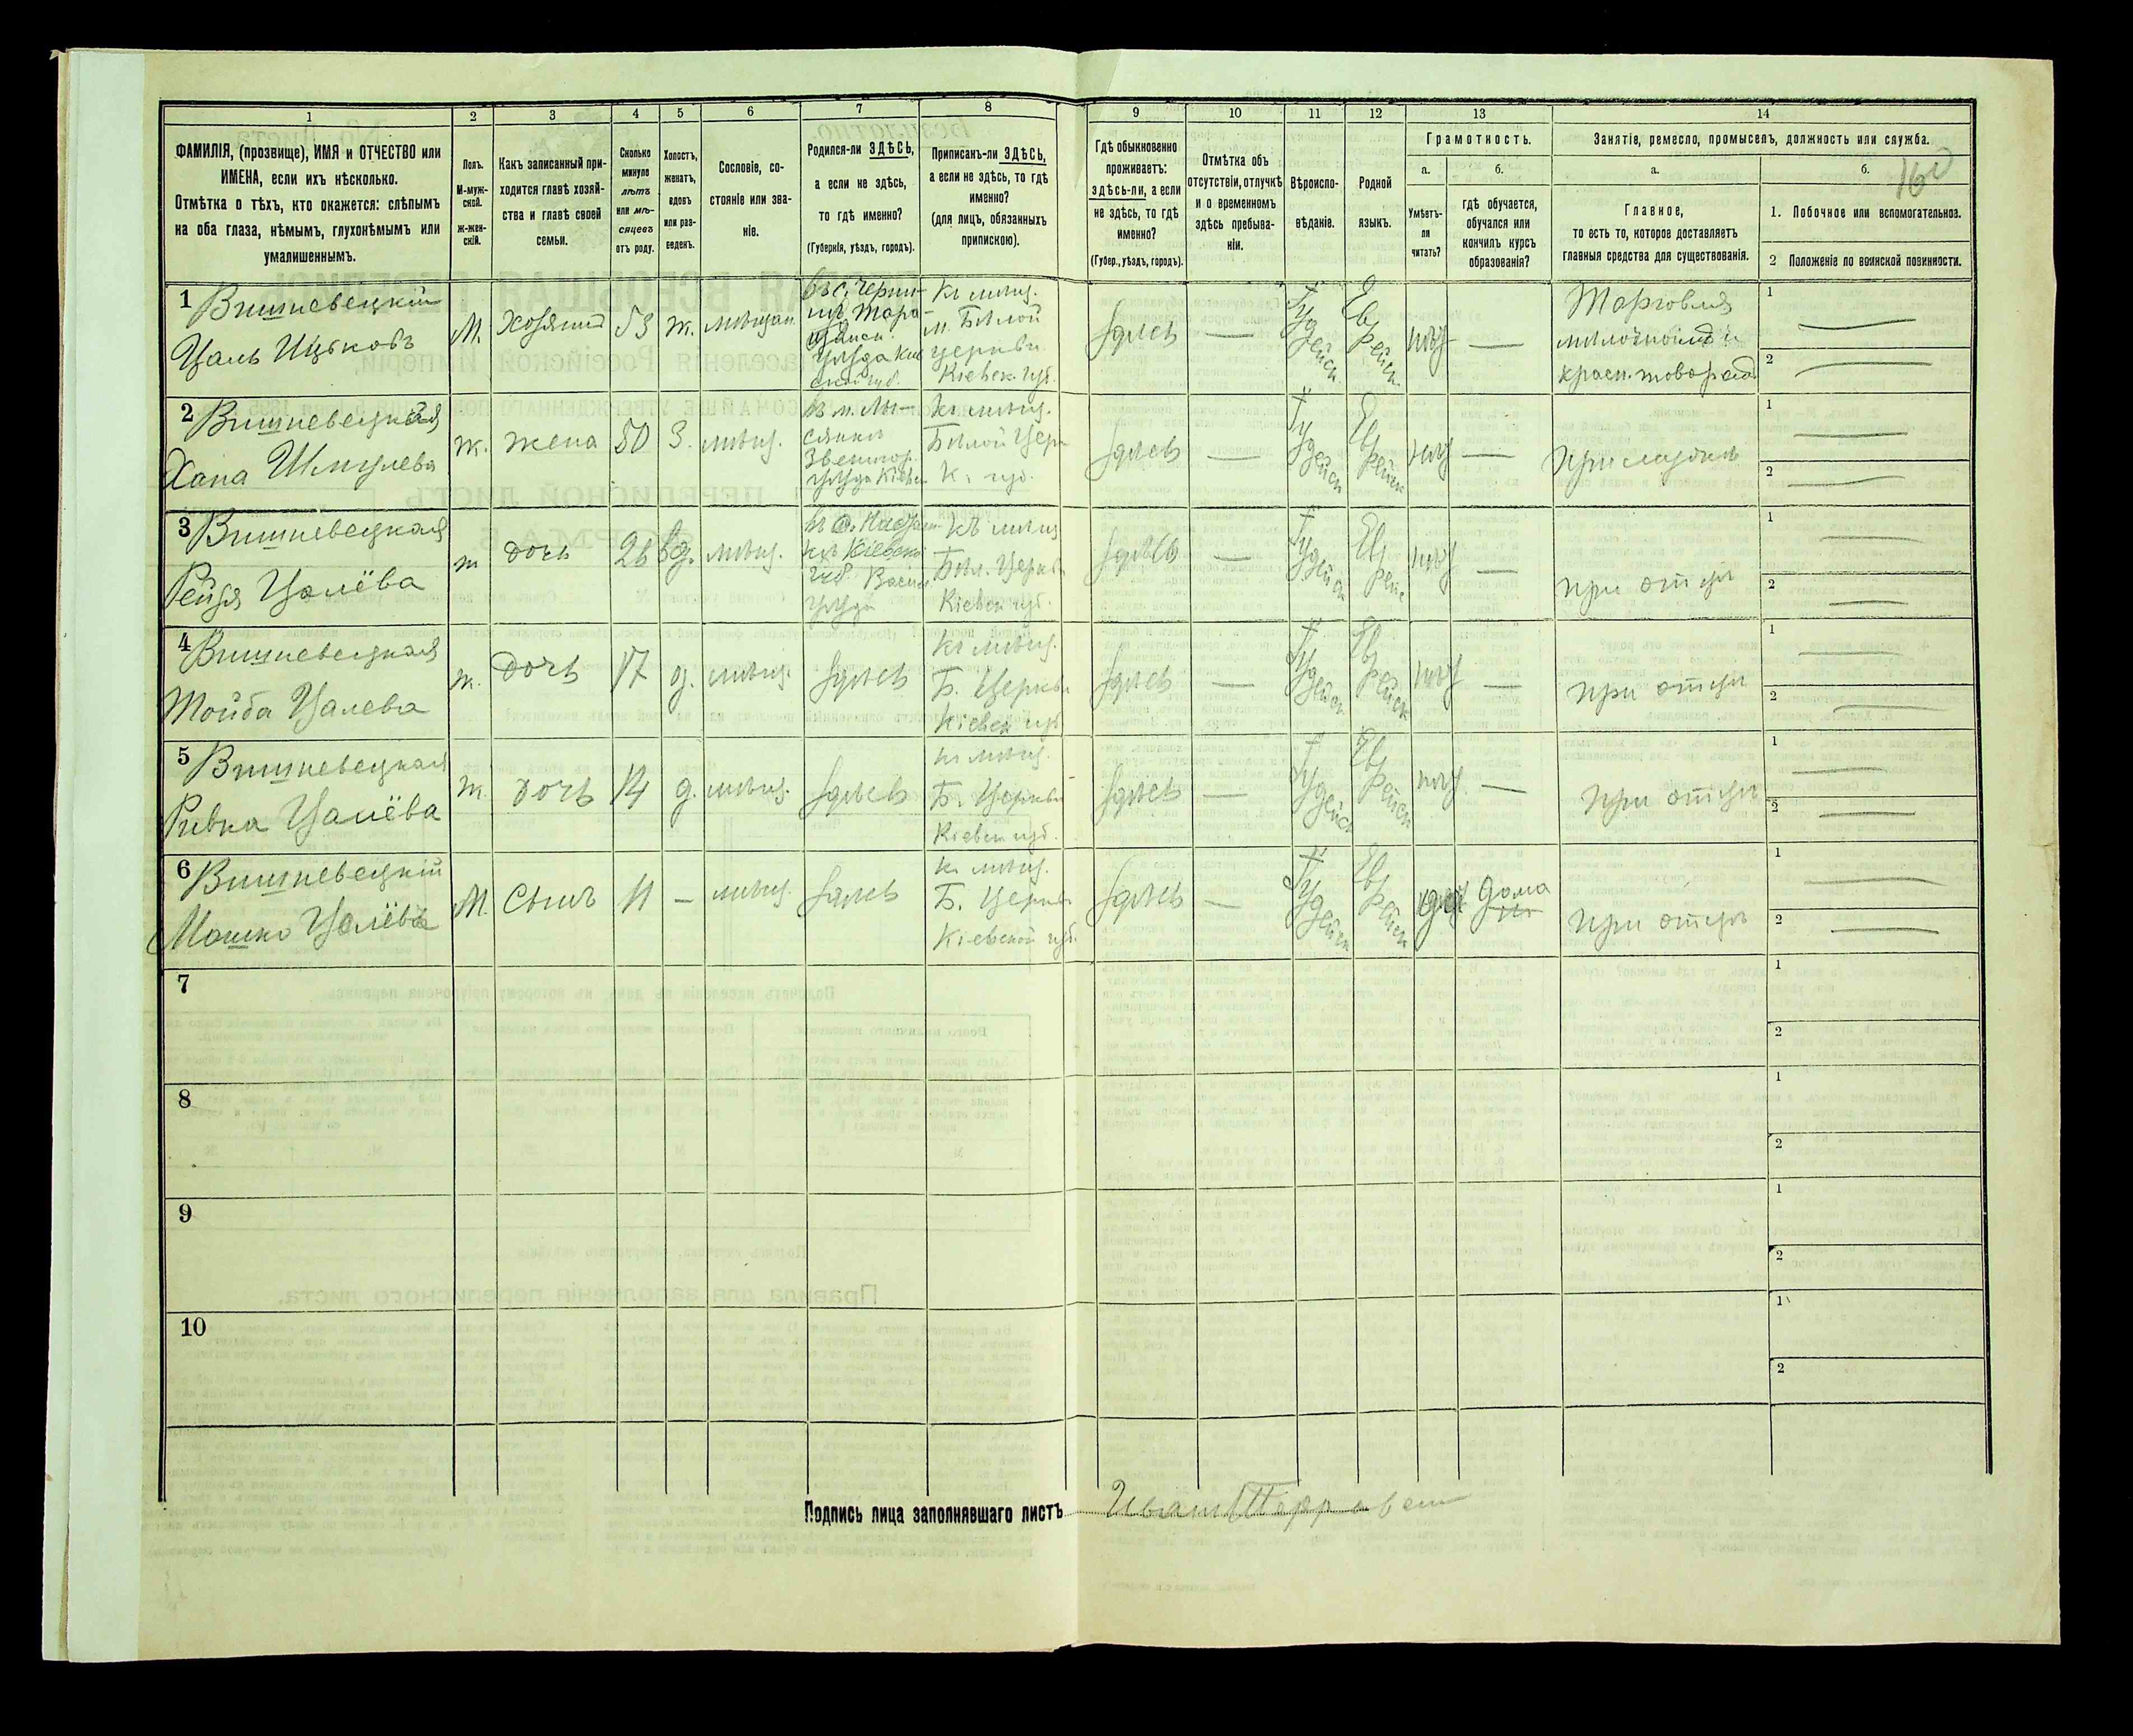 1
2
3
4
5
6
7
8
9
10
11
12
13
14
ФАМИЛІЯ, (прозвище), ИМЯ и ОТЧЕСТВО или
ИМЕНА, если ихъ нѣсколько.
Отмѣтка о тѣхъ, кто окажется: слѣпымъ
на оба глаза, нѣмымъ, глухонѣмымъ или
умалишеннымъ.
Полъ.
М-муж-
ской.
ж-жен-
скій.
Какъ записанный при-
ходится главѣ хозяй-
ства и главѣ своей
семьи.
Сколько
минуло
лѣтъ
или мѣ-
сяцевъ
отъ роду.
Холостъ,
женатъ,
вдовъ
или раз-
веденъ.
Сословіе, со-
стояніе или зва-
ніе.
Родился-ли ЗДѢСЬ,
а если не здѣсь,
то гдѣ именно?
(Губернія, уѣздъ, городъ).
Приписанъ-ли ЗДѢСЬ,
а если не здѣсь, то гдѣ
именно?
(для лицъ, обязанныхъ
припискою).
Гдѣ обыкновенно
проживаетъ:
здѣсь-ли, а если
не здѣсь, то гдѣ
именно?
(Губер., уѣздъ, городъ).
Отмѣтка объ
отсутствіи, отлучкѣ
и о временномъ
здѣсь пребыва-
ніи.
Вѣроиспо-
вѣданіе.
Родной
языкъ.
Грамотность.
а.
Умѣетъ-
ли
читать?
б.
гдѣ обучается,
обучался или
кончилъ курсъ
образованія?
Занятіе, ремесло, промыселъ, должность или служба.
а.
Главное,
то есть то, которое доставляетъ
главныя средства для существованія.
б.
160
1. Побочное или вспомогательноз.
2 Положеніе по воинской повинности.
1
Вишневецкій
Цаль Ицковъ
М.
Хозяинъ
53
ж.
мѣщан
Къ мѣщ.
м. Бѣлой
Церкви
Кіевск. губ.
здѣсь
—
Іудейск
Еврейск
нѣт
—
Торговля
красн. товаром
1
2
2
Вишневецкая
Хана Шмулева
ж.
жена
50
З.
мѣщ.
Къ мѣщ.
Бѣлой Церк
К. губ.
здѣсь
—
Іудейск
Еврейск
нѣт
—
1
2
3
Вишневецкая
Рейзя Цалёва
ж
дочь
26
вд.
мѣщ.
Къ мѣщ
Бѣл. Церкв
Кіевск губ.
здѣсь
—
Іудейск
Еврейс
нѣт
—
при отцѣ
1
2
4
Вишневецкая
Тойба Цалева
ж.
Дочь
17
д.
мѣщ.
здѣсь
Къ мѣщ.
Б. Церкви
Кіевск губ
здѣсь
—
Іудейск
Еврейск
нѣт
—
при отцѣ
1
2
5
Вишневецкая
Ривка Цалёва
ж.
дочь
14
д.
мѣщ.
здѣсь
къ мѣщ.
Б. Церкви
Кіевск губ.
здѣсь
—
Іудейск
Еврейск
нѣт
—
при отцѣ
1
2
6
Вишневецкій
Мошко Цалёвъ
М.
Сынъ
11
—
мѣщ.
здѣсь
къ мѣщ.
Б. Церкв
Кіевской губ.
здѣсь
—
Іудейск
Еврейск
дома
при отцѣ
1
2
7
1
2
8
1
2
9
1
2
10
1
2
Подпись лица заполнявшаго листъ